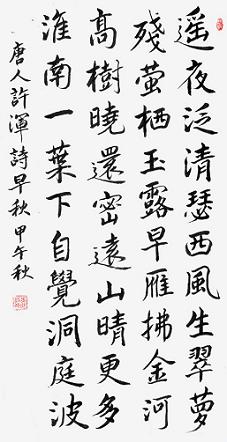 遥夜泛清瑟西風生翠萝
殘萤栖玉露早雁拂金河
高樹曉還密遠山晴更多
淮南一葉下自覺洞庭波
唐人許渾詩早秋甲午秋